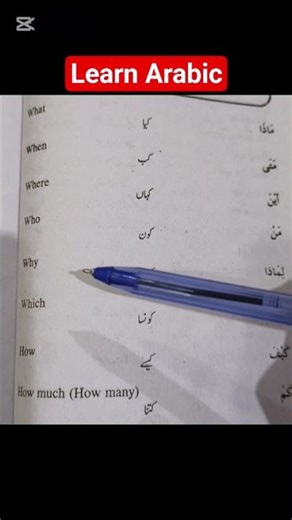 Learn Arabic
What کیا مَاذَا
When کب مَتَى
Where کہاں أَيْنَ
Who کون مَنْ
Why لِمَاذَا
Which کونسا
How کیسے كَيْفَ
How much (How many) کتنا كَمْ